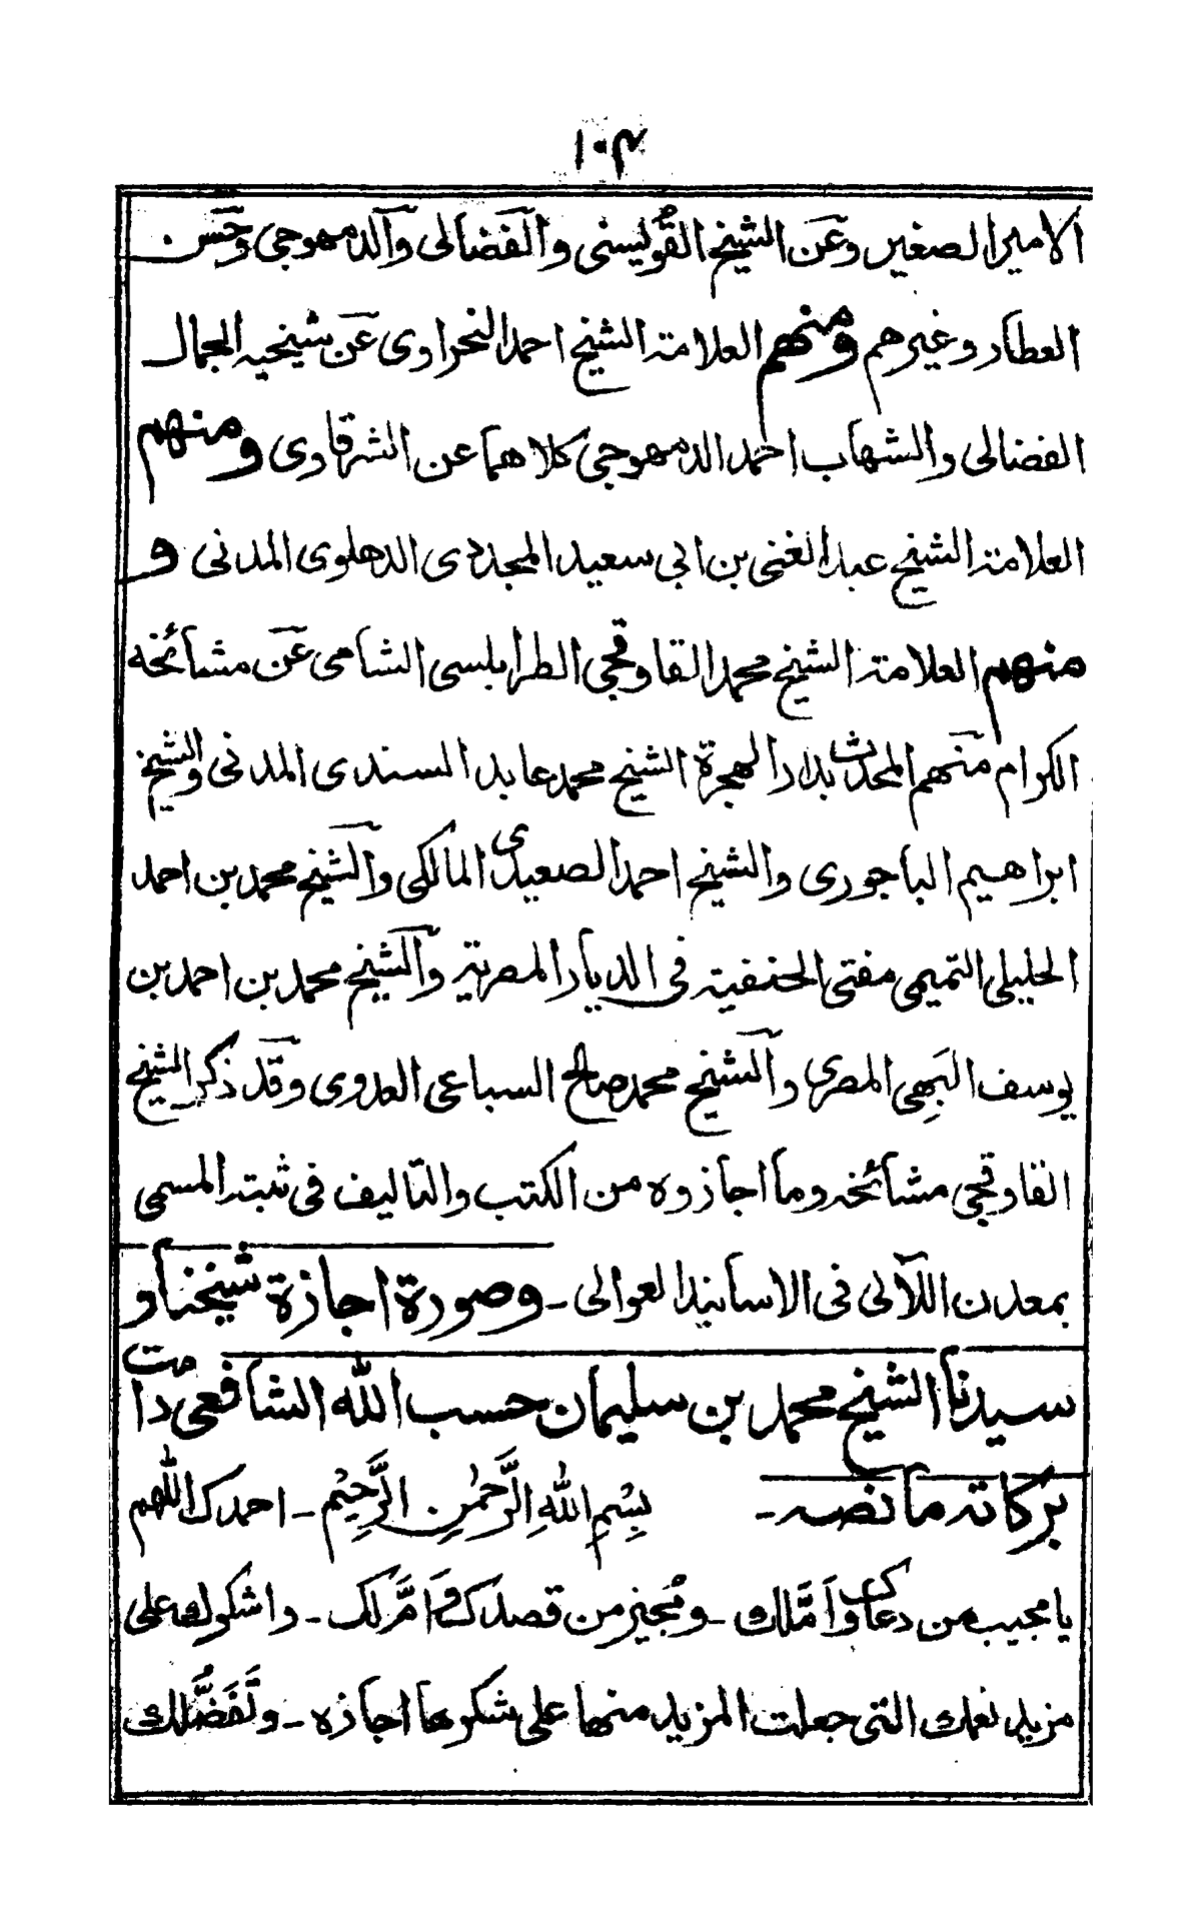 ١٠٣
الامير الصغير وعن الشيخ القُوليسنى والفضالى والدمهوجى وحَسن
العطار وغيرهم ومنهم العلامة الشيخ احمد النحراوى عن شيخيه الجمال
الفضالى والشهاب احمد الدمهوجى كلاهما عن الشرقاوى ومنهم
العلامة الشيخ عبد الغنى بن ابى سعيد المجددى الدهلوى المدنى و
منهم العلامة الشيخ محمد القاوقجى الطرابلسى الشامى عن مشائخه
الكرام منهم المحدث بدار الهجرة الشيخ محمد عابد السندى المدنى والشيخ
ابراهيم الباجورى والشيخ احمد الصعيدى المالكى والشيخ محمد بن احمد
الخليلى التميمى مفتى الحنفية فى الديار المصرية والشيخ محمد بن احمد بن
يوسف البَهِى المصرى والشيخ محمد صالح السباعى العدوى وقد ذكر الشيخ
القاوقجى مشائخه وما اجازوه من الكتب والتاليف فى ثبته المسمى
بمعدن اللآلى فى الاسانيد العوالى ـ وصورة اجازة شيخنا و
سيدنا الشيخ محمد بن سليمان حسب الله الشافعى دامت
بركاته ما نصه ـ بِسْمِ اللهِ الرَّحْمٰنِ الرَّحِيْمِ ـ احمدك اللهم
يا مجيب من دعاك وَاَمَّلك ـ ومُجيز من قصدك وَاَمَّ لك ـ واشكرك على
مزيد نعمك التى جعلت المزيد منها على شكرها اجازه ـ وتَفَضُّلك